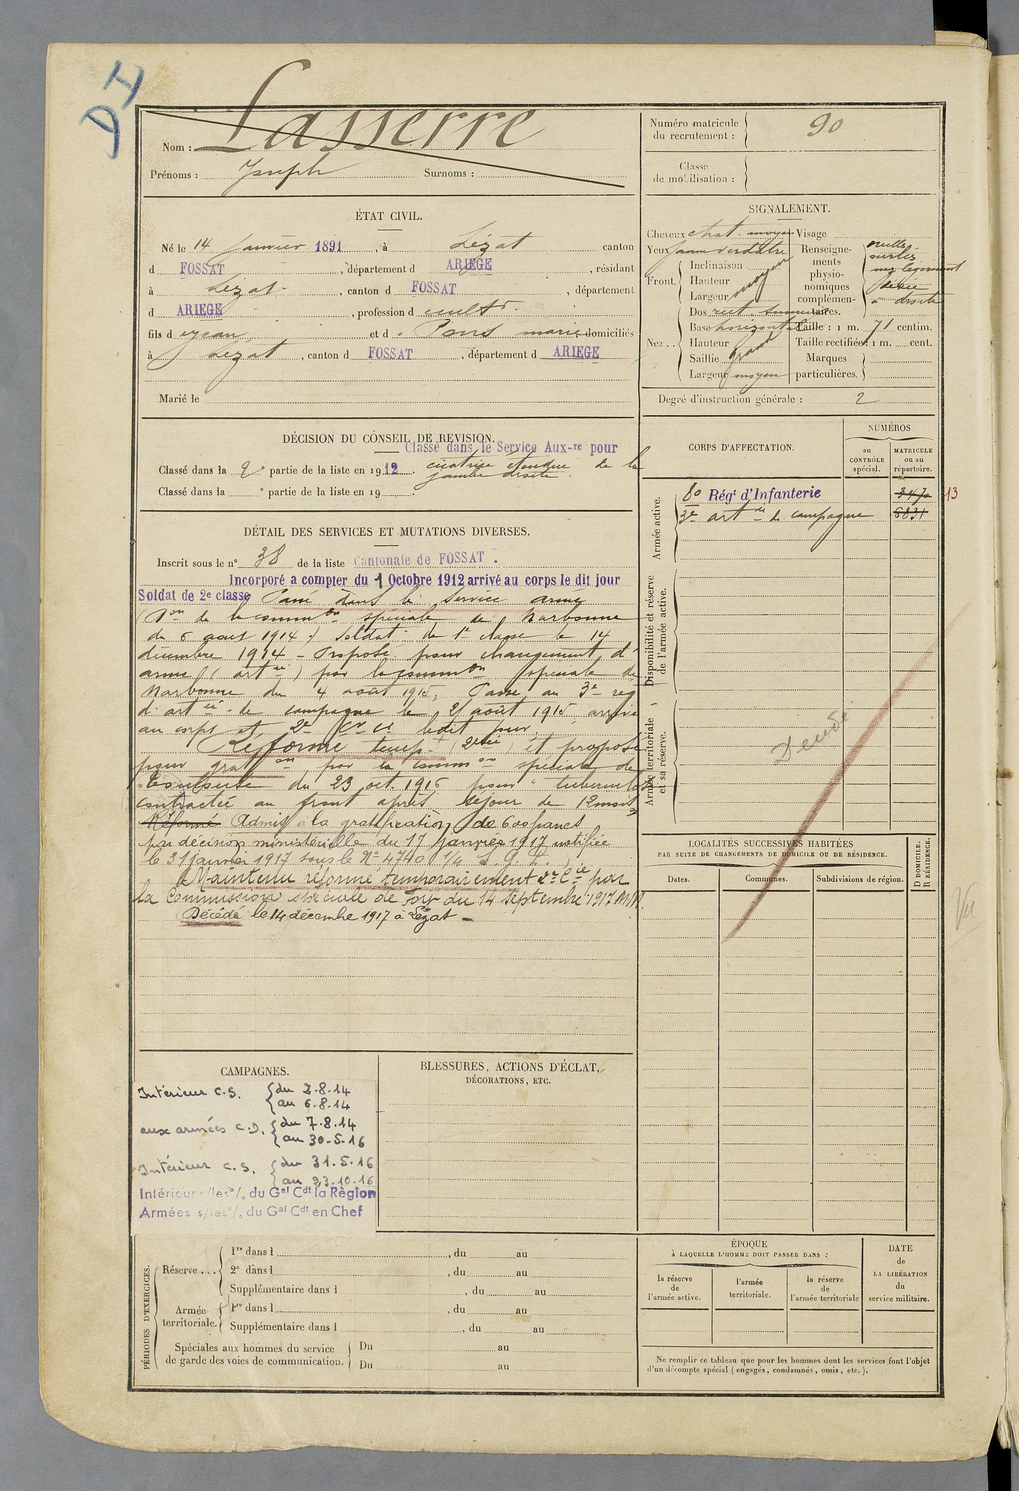 DI
Nom : Lasserre
Prénoms : Joseph Surnoms :
Numéro matricule du recrutement : 90
Classe de mobilisation :
ÉTAT CIVIL.
Né le 14 janvier 1891, à Lézat canton
d FOSSAT, département d ARIEGE, résidant
à Lézat, canton d FOSSAT, département
d ARIEGE, profession d cultr.
fils d Jean, et d Pons marie domiciliés
à Lezat, canton d FOSSAT, département d ARIEGE
Marié le
SIGNALEMENT.
Cheveux chat. moyen Visage
Yeux jaune verdâtre
Front. Inclinaison
Hauteur moyen
Largeur
Dos rect.
Nez.. Base horizontale
Hauteur
Saillie grand
Largeur moyen
Renseignements physionomiques complémentaires.
nez légèrement
dévié
à droite
Taille : 1 m. 71 centim.
Taille rectifiée : 1 m. cent.
Marques particulières.
Degré d'instruction générale : 2
DÉCISION DU CONSEIL DE REVISION.
Classé dans le Service Aux-re pour
Classé dans la 2e partie de la liste en 1912 cicatrice étendue de la
jambe droite.
Classé dans la e partie de la liste en 19
CORPS D'AFFECTATION.
NUMÉROS
au CONTRÔLE spécial.
MATRICULE ou au répertoire.
Armée active.
80 Régt d'Infanterie 13
3e artie de campagne
Disponibilité et réserve de l'armée active.
Armée territoriale et sa réserve.
Décédé
DÉTAIL DES SERVICES ET MUTATIONS DIVERSES.
Inscrit sous le n° 38 de la liste Cantonale de FOSSAT.
Incorporé a compter du 1 Octobre 1912 arrivé au corps le dit jour
Soldat de 2e classe Passé dans le service armé
(Don de la common spéciale de Narbonne
du 6 aout 1914) Soldat de 1e classe le 14
décembre 1914 - Proposé pour changement d'
arme (artie) par la common spéciale de
Narbonne du 4 août 1915, Passé au 3e reg
d'artie de campagne le 21 août 1915, arrivé
au corps et 2e Cr Ct ledit jour
Réformé temp. et proposé
pour graton par la Common spéciale de
Toulouse du 23 oct. 1916 pour "tuberculose
contractée au front après séjour de 12 mois"
Réformé Admis à la gratification de 600 francs
par décision ministérielle du 17 janvier 1917 notifiée
le 31 janvier 1917 sous le N° 4740 1/4 S.G.P.
Maintenu réformé temporairement par
la Commission spéciale de Foix du 14 septembre 1917
Décédé le 14 décembe 1917 à Lézat -
LOCALITÉS SUCCESSIVES HABITÉES
PAR SUITE DE CHANGEMENTS DE DOMICILE OU DE RÉSIDENCE.
Dates. Communes. Subdivisions de région.
D DOMICILE. R RÉSIDENCE.
Vu
CAMPAGNES.
Intérieur C.S. du 2.8.14
au 6.8.14
aux armées C.D. du 7.8.14
au 30.5.16
Intérieur C.S. du 31.5.16
au 23.10.16
Intérieur s/les°/₀ du Gal Cdt la Règion
Armées s/les°/₀ du Gal Cdt en Chef
BLESSURES, ACTIONS D'ÉCLAT,
DÉCORATIONS, ETC.
PÉRIODES D'EXERCICES.
Réserve... 1re dans l , du au
2e dans l , du au
Supplémentaire dans l , du au
Armée territoriale. 1re dans l , du au
Supplémentaire dans l , du au
Spéciales aux hommes du service
de garde des voies de communication. Du au
Du au
ÉPOQUE
À LAQUELLE L'HOMME DOIT PASSER DANS :
la réserve de l'armée active.
l'armée territoriale.
la réserve de l'armée territoriale
DATE de LA LIBÉRATION du service militaire.
Ne remplir ce tableau que pour les hommes dont les services font l'objet
d'un décompte spécial (engagés, condamnés, omis, etc.).